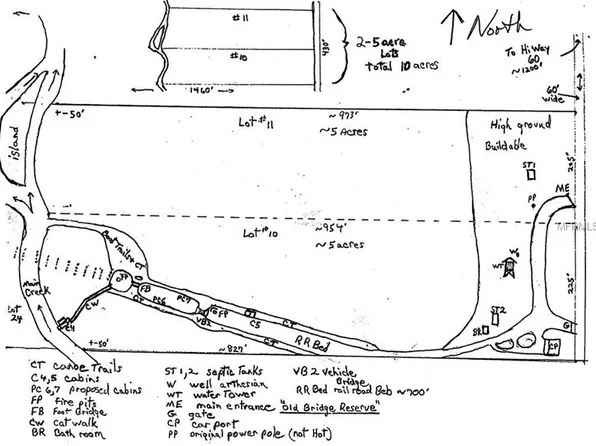 #11
#10
430'
1460'
2-5 acre
Lots
Total 10 acres
North
To HiWay
60
~1200'
60'
wide
+-50'
~973'
Lot #11
~5 Acres
High ground
Buildable
ST1
205'
PP
ME
island
~954'
Lot #10
~5 acres
MFRMLS
W
WT
225'
CT
FP
FB
PC6
PC7
FP
VB2
C5
CT
CT
RR Bed
ST2
BR
G
CP
Main
Creek
Lot
24
CW
C4
+-50'
~827'
CT canoe Trails
C4,5 cabins
PC 6,7 proposed cabins
FP fire pits
FB Foot Bridge
CW cat walk
BR Bath room
ST1,2 septic Tanks
W well arthesian
WT water Tower
ME main entrance "old Bridge Reserve"
G gate
CP car port
PP original power pole (not Hot)
VB2 Vehicle
Bridge
RR Bed rail road Bed ~700'